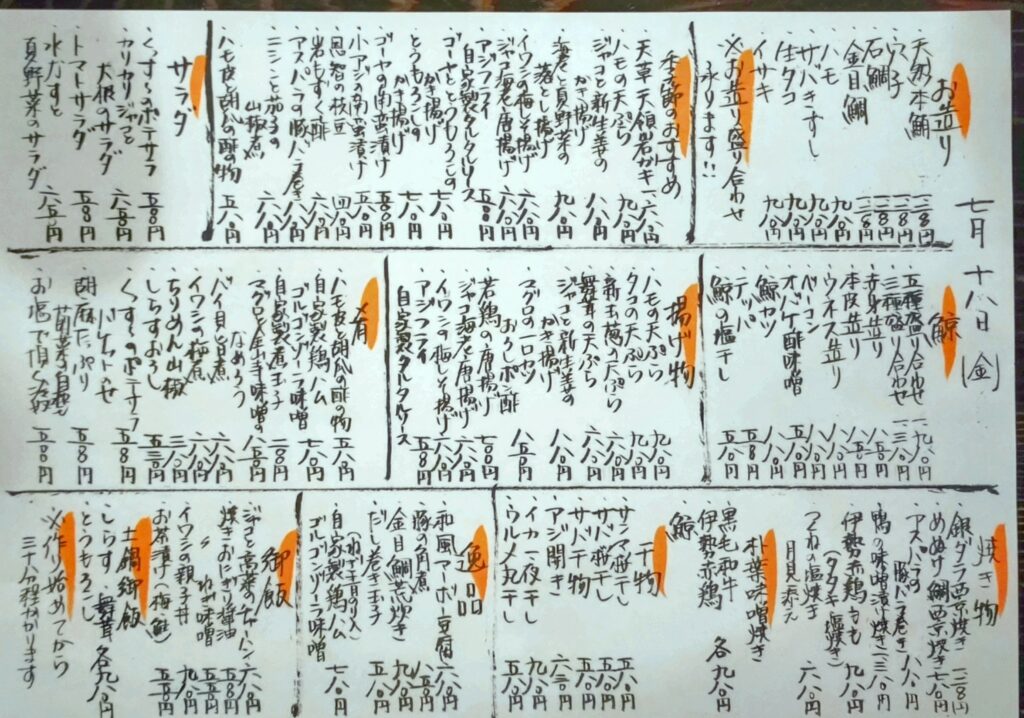 七月十八日(金)
お造り
・天然本鮪 一二八〇円
・穴子 一二八〇円
・石鯛 一二八〇円
・金目鯛 一二八〇円
・ハモ 九八〇円
・サバきずし 九八〇円
・生タコ 九八〇円
・イサキ 九八〇円
※お造り盛り合わせ
承ります!!
季節のおすすめ
・天草天領岩ガキ 一六八〇円
・ハモの天ぷら 九八〇円
・ジャコと新生姜の
かき揚げ 八八〇円
・海老と夏野菜の
落とし揚げ 九八〇円
・イワシの梅しそ揚げ 六八〇円
・ジャコ海老唐揚げ 六八〇円
・アジフライ
自家製タルタルソース 五八〇円
・ゴーヤととうもろこしの
かき揚げ 七八〇円
・とうもろこしの
かき揚げ 七八〇円
・ゴーヤの南蛮漬け 五八〇円
・小アジの南蛮漬け 六八〇円
・恩智の枝豆 四八〇円
・岩もずく酢 六八〇円
・アスパラの豚バラ巻き 八八〇円
・ニシンと茄子の
山椒煮 六八〇円
・ハモ皮と胡瓜の酢の物 五八〇円
サラダ
・くんたまのポテサラ 五八〇円
・カリカリジャコと
大根のサラダ 六八〇円
・トマトサラダ 五八〇円
・水なすと
夏野菜のサラダ 六八〇円
鯨
・五種盛り合わせ
・三種盛り合わせ
・赤身造り
・本皮造り
・ウネス造り
・ベーコン
・オバケ酢味噌
・鯨カツ
・テッパ
・鯨の塩干し
揚げ物
・ハモの天ぷら 九八〇円
・タコの天ぷら 九八〇円
・新玉葱の天ぷら 六八〇円
・舞茸の天ぷら 六八〇円
・ジャコと新生姜の
かき揚げ 八八〇円
・マグロの一口カツ
おろしポン酢 八八〇円
・若鶏の唐揚げ
・ジャコ海老唐揚げ 六八〇円
・イワシの梅しそ揚げ 六八〇円
・アジフライ
自家製タルタルソース 五八〇円
肴
・ハモ皮と胡瓜の酢の物 五八〇円
・自家製鶏ハム
ゴルゴンゾーラ味噌 七八〇円
・自家製煮玉子
・マグロと金山寺味噌の
なめろう
・バイ貝旨煮 六八〇円
・イワシの梅煮 六八〇円
・ちりめん山椒
・しらすおろし
・くんたまのポテサラ 五八〇円
・胡麻だっぷり
バンバンジー
焼き物
・銀ダラ西京焼き 一二八〇円
・めぬけ鯛西京焼き
・アスパラの
豚バラ巻き 八八〇円
・鴨の味噌漬け焼き
・伊勢赤鶏もも
(タタキ・塩焼き) 九八〇円
・つくねの塩焼き
月見添え 六八〇円
朴葉味噌焼き
・黒毛和牛
・伊勢赤鶏
・鯨 各九八〇円
干物
・サンマ桜干し 五八〇円
・サバ桜干し 五八〇円
・サバ干物 五八〇円
・アジ開き 六八〇円
・イカ一夜干し 九八〇円
・ウルメ丸干し 五八〇円
逸品
・和風マーボー豆腐 六八〇円
・豚の角煮
・金目鯛荒炊き 九八〇円
・だし巻き玉子
(ねぎ・青のり入り)
・自家製鶏ハム
ゴルゴンゾーラ味噌 七八〇円
御飯
・ジャコと高菜のチャーハン 六八〇円
・焼きおにぎり醤油
〃 ねぎ味噌
・イワシの親子丼 九八〇円
・お茶漬け(梅・鮭)
土鍋御飯
・しらす・舞茸
・とうもろこし 各九八〇円
※作り始めてから
三十分程かかります